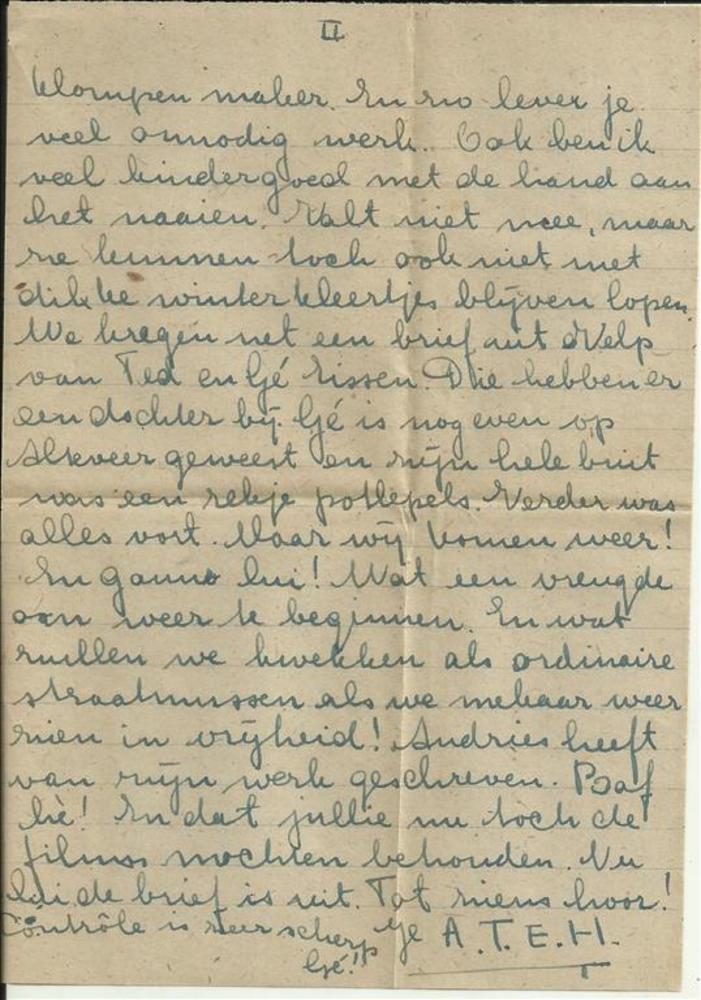 II
klompen maker. En zo lever je
veel onnodig werk. Ook ben ik
veel kindergoed met de hand aan
het naaien. Valt niet mee, maar
ze kunnen toch ook niet met
dikke winterkleertjes blijven lopen.
We kregen net een brief uit Velp
van Ted en Gé Rissen. Die hebben er
een dochter bij. Gé is nog even op
geweest en zijn hele buit
was een rekje potlepels. Verder was
alles vort. Maar wij komen weer!
En gauw lui! Wat een vreugde
om weer te beginnen. En wat
zullen we kwekken als ordinaire
straatmussen als we mekaar weer
zien in vrijheid! Andries heeft
van zijn werk geschreven. Bof
hè! En dat jullie nu toch de
films mochten behouden. Nu
lui de brief is uit. Tot ziens hoor!
Contrôle is zeer scherp Je A.T.E.H.
Gé!!